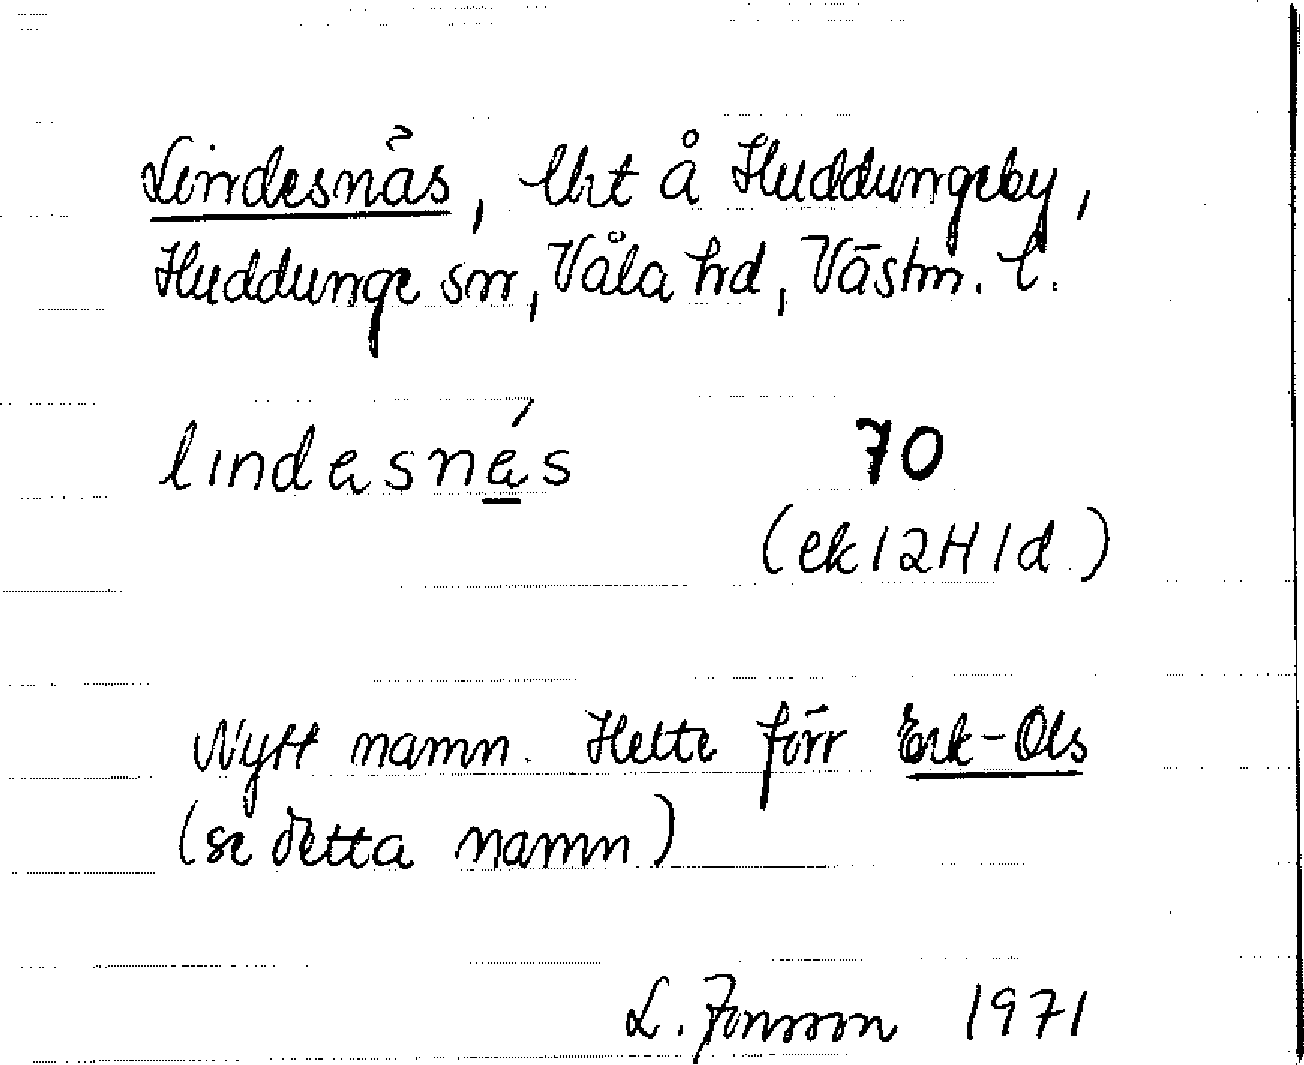 Lindesnäs, lht å Huddungeby,
Huddunge sn, Våla hd, Västm. l.
lindesnés 70
(ek 12H1d)
Nytt namn. Hette förr Erk-Ols
(se detta namn)
L. Jonsson 1971